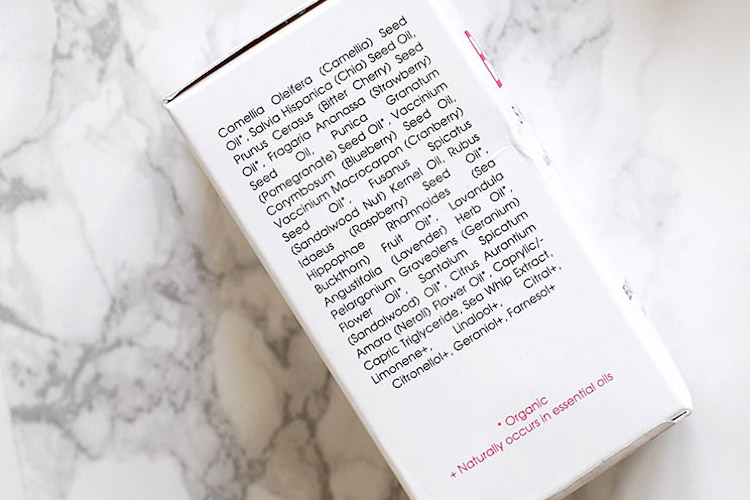 Camellia Oleifera (Camellia) Seed
Oil*, Salvia Hispanica (Chia) Seed Oil,
Prunus Cerasus (Bitter Cherry) Seed
Oil*, Fragaria Ananassa (Strawberry)
Seed Oil, Punica Granatum
(Pomegranate) Seed Oil*, Vaccinium
Corymbosum (Blueberry) Seed Oil,
Vaccinium Macrocarpon (Cranberry)
Seed Oil*, Fusanus Spicatus
(Sandalwood Nut) Kernel Oil, Rubus
Idaeus (Raspberry) Seed Oil*,
Hippophae Rhamnoides (Sea
Buckthorn) Fruit Oil*, Lavandula
Angustifolia (Lavender) Herb Oil*,
Pelargonium Graveolens (Geranium)
Flower Oil*, Santalum Spicatum
(Sandalwood) Oil*, Citrus Aurantium
Amara (Neroli) Flower Oil*, Caprylic/-
Capric Triglyceride, Sea Whip Extract,
Limonene+, Linalool+, Citral+,
Citronellol+, Geraniol+, Farnesol+
* Organic
+ Naturally occurs in essential oils